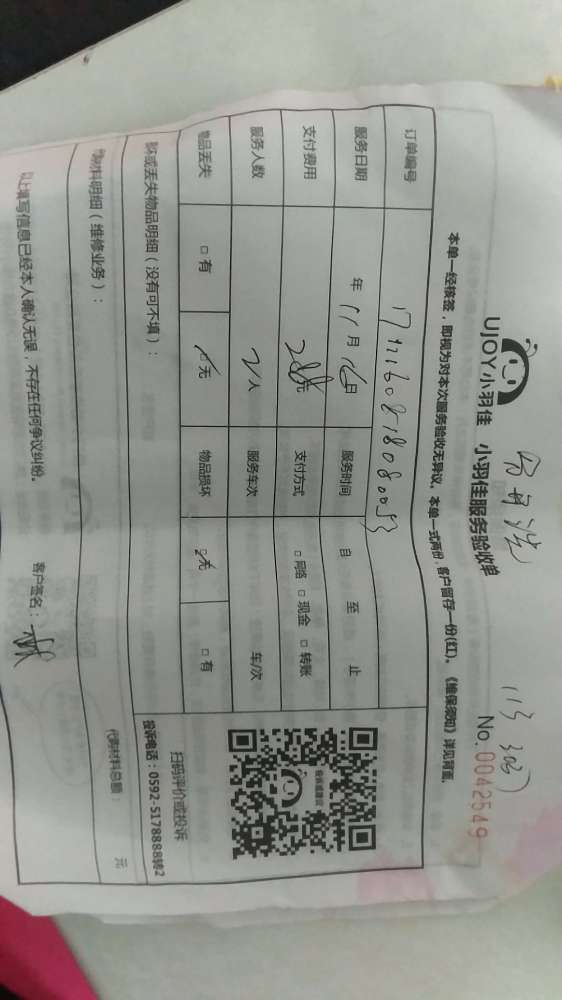 UJOY小羽佳 小羽佳服务验收单 No. 0042549
本单一经核签，即视为对本次服务验收无异议，本单一式两份，客户留存一份(红)。《维保须知》详见背面。
订单编号
服务日期 年 11月16日 服务时间 自 至 止
支付费用 元 支付方式 □网络 □现金 □转账
服务人数 2人 服务车次 车/次
物品丢失 □有 □无 物品损坏 □无 □有
坏或丢失物品明细（没有可不填）：
扫码评价或投诉
投诉电话：0592-5178888转2
代购材料明细（维修业务）： 代购材料总额： 元
以上填写信息已经本人确认无误，不存在任何争议纠纷。 客户签名：